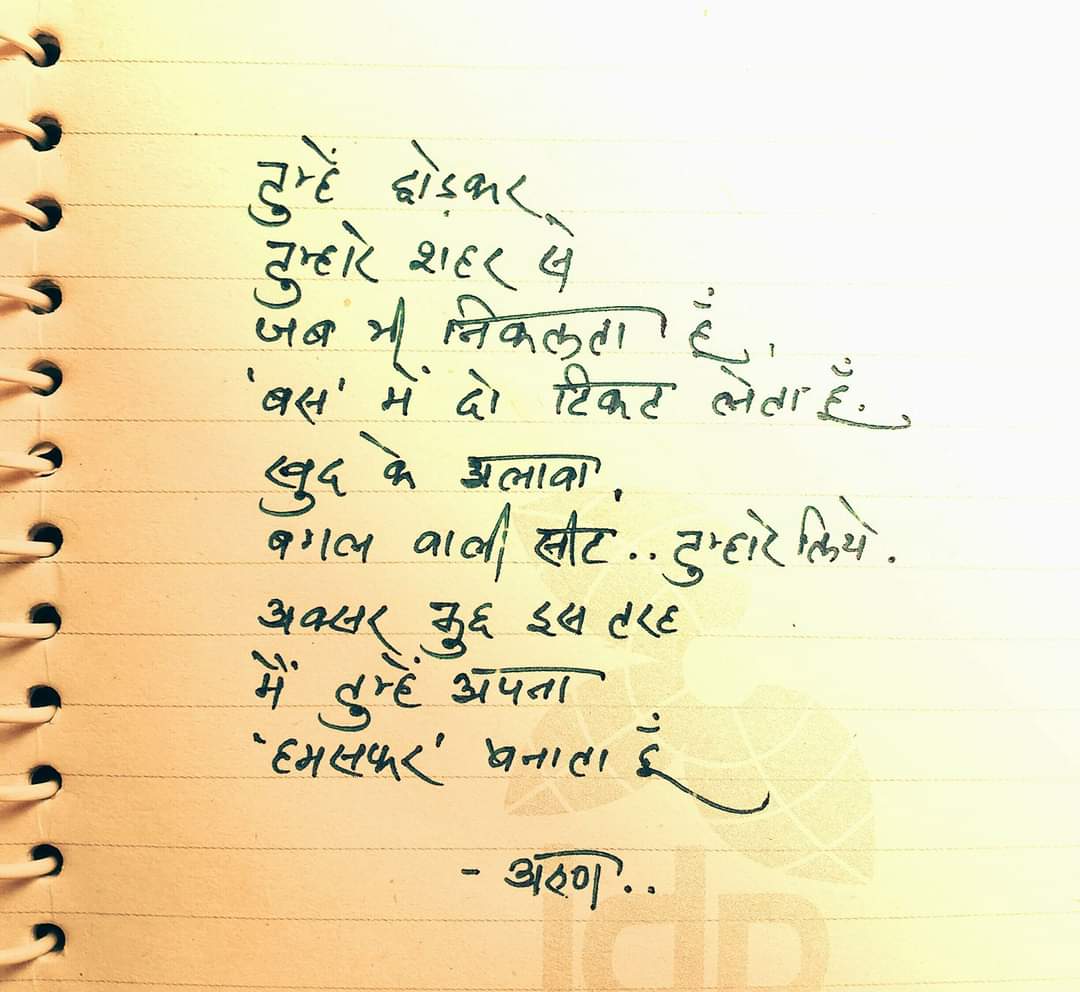 तुम्हें छोड़कर
तुम्हारे शहर से
जब भी निकलता हूँ,
'बस' में दो टिकट लेता हूँ.
खुद के अलावा,
बगल वाली सीट.. तुम्हारे लिये.
अक्सर कुछ इस तरह
मैं तुम्हें अपना
'हमसफर' बनाता हूँ
- अरुण..
idp